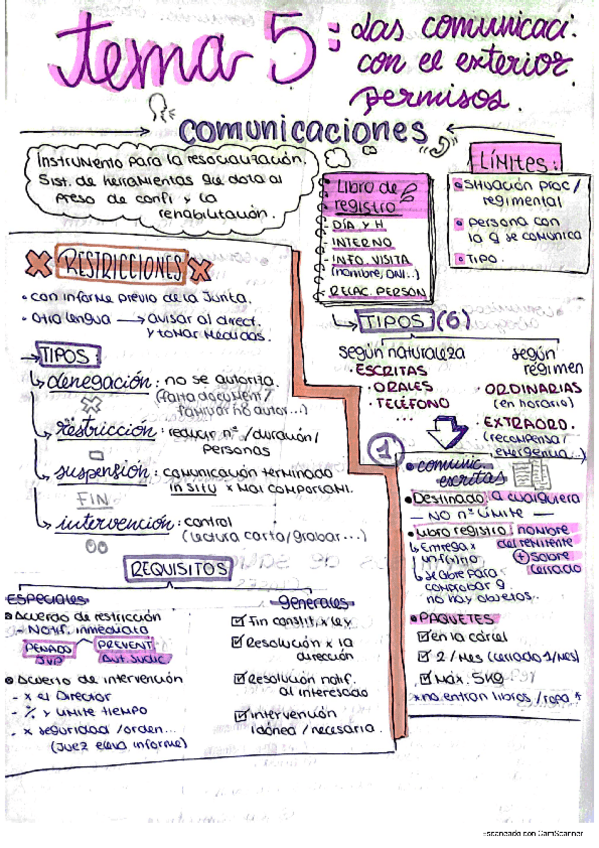 tema 5: Las comunicaci.
con el exterior.
permisos.
comunicaciones
Instrumento para la resocialización.
Sist. de herramientas que dota al
preso de confi y la
rehabilitación.
Libro de
registro
- DÍA y H
- INTERNO
- INFO. VISITA
(nombre, DNI...)
- RELAC. PERSON
LÍMITES:
Situación proc/
regimental
persona con
la q se comunica
TIPO.
RESTRICCIONES
• con informe previo de la Junta.
• otra lengua → avisar al direct.
y tomar medidas.
→ TIPOS
denegación: no se autoriza.
(falta document/
familiar no autor...)
restricción: reducir nº/duración/
personas
suspensión: comunicación terminada
in situ x mal comportami.
FIN
intervención: control
(lectura carta/grabar...)
→ TIPOS (6)
según naturaleza
• ESCRITAS
• ORALES
• TELÉFONO
según
régimen
• ORDINARIAS
(en horario)
• EXTRAORD.
(recompensa/
emergencia...)
1
• comunic.
escritas
• Destinado a cualquiera
NO nº límite —
• Libro registro nombre
del remitente
+ sobre
cerrado
↳ Entrega x
un func
↳ se abre para
comprobar q
no hay objetos.
• PAQUETES
☑ en la cárcel
☑ 2/mes (cerrado 1/mes)
☑ Máx. 5kg
*no entran libros/ropa *
REQUISITOS
Especiales
• Acuerdo de restricción
- Notif. inmediata
PENADO
JVP
PREVENT
Aut. Judic
• Acuerdo de intervención
- x el Director
- y límite tiempo
- x seguridad/orden...
(Juez eleva informe)
generales
☑ Fin constit. x ley
☑ Resolución x la
dirección
☑ Resolución notif.
al interesado
☑ Intervención
idónea/necesaria.
Escaneado con CamScanner